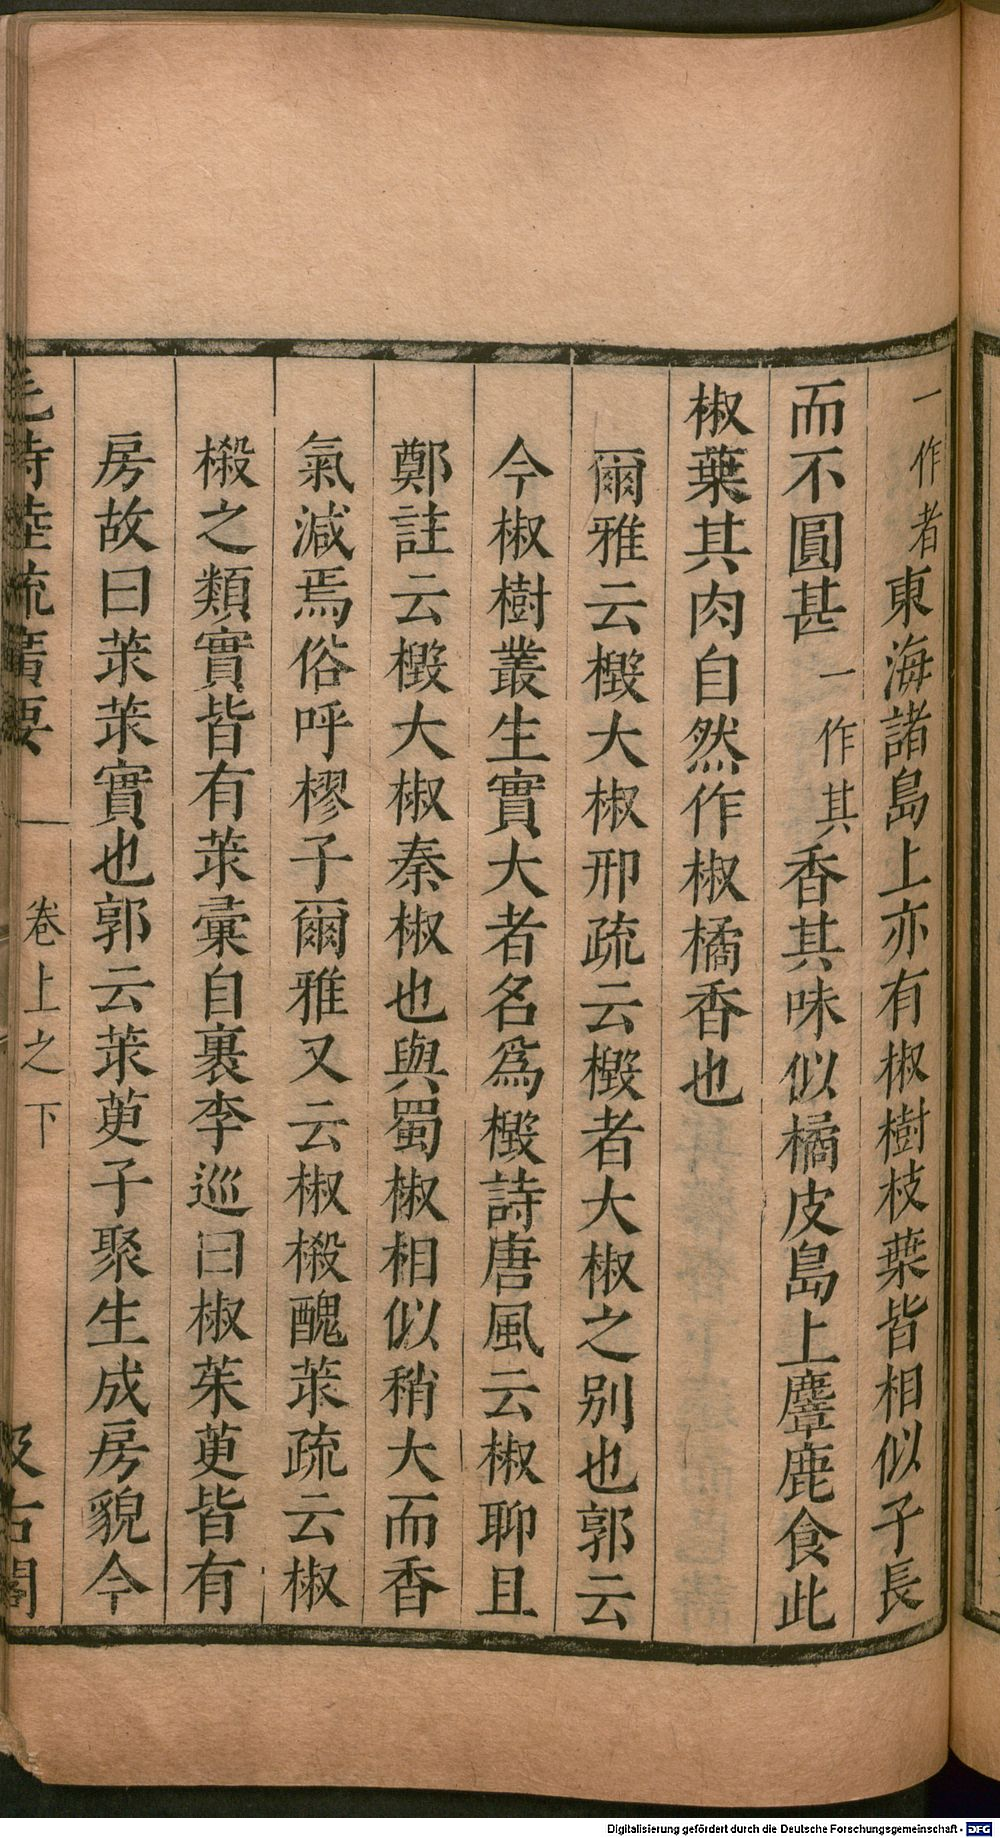 一作者東海諸島上亦有椒樹枝葉皆相似子長
而不圓甚一作其香其味似橘皮島上麞鹿食此
椒葉其肉自然作椒橘香也
爾雅云檓大椒邢疏云檓者大椒之別也郭云
今椒樹叢生實大者名爲檓詩唐風云椒聊且
鄭註云檓大椒秦椒也與蜀椒相似稍大而香
氣減焉俗呼樛子爾雅又云椒榝醜莍疏云椒
榝之類實皆有莍彙自裹李巡曰椒茱萸皆有
房故曰莍莍實也郭云莍萸子聚生成房貌今
毛詩陸疏廣要
卷上之下
汲古閣
Digitalisierung gefördert durch die Deutsche Forschungsgemeinschaft - DFG